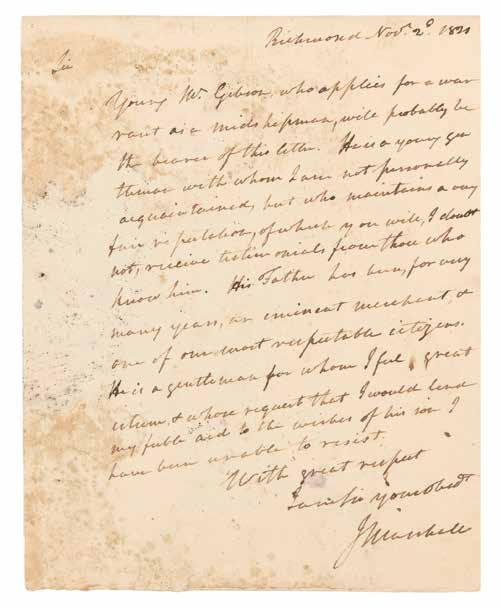 Richmond Novr. 2d. 1821
Sir
Young Mr. Gibson, who applies for a war
rant as a midshipman, will probably be
the bearer of this letter. He is a young gen
tleman with whom I am not personally
acquainted, but who maintains a very
fair reputation, of which you will, I doubt
not, receive testimonials from those who
know him. His Father has been, for very
many years, an eminent merchant, &
one of our most respectable citizens.
He is a gentleman for whom I feel great
esteem, & whose request that I would lend
my feeble aid to the wishes of his son I
have been unable to resist.
With great respect
I am Sir your Obedt
J Marshall